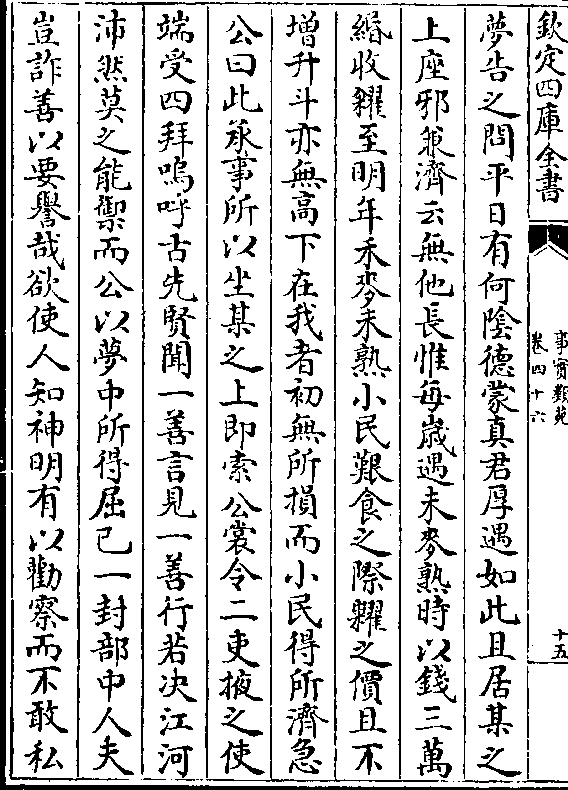 欽定四庫全書
事實類苑
卷四十六
十五
夢告之問平日有何陰德蒙真君厚遇如此且居某之
上座邪兼濟云無他長惟毎歳遇禾麥熟時以錢三萬
緡收糴至明年禾麥未熟小民艱食之際糶之價且不
增升斗亦無高下在我者初無所損而小民得所濟急
公曰此承事所以坐某之上即索公裳令二吏掖之使
端受四拜嗚呼古先賢聞一善言見一善行若决江河
沛然莫之能禦而公以夢中所得屈已一封部中人夫
豈詐善以要譽哉欲使人知神明有以勸察而不敢私